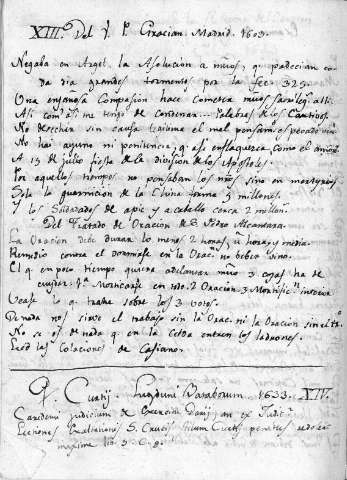 XIII. Del V. P. Gracian. Madrid. 1603.
Negaba en Argel la Asolucion a mũos, q̃ padecian ca-
da dia grandes tormentos por la fee. 325.
Una engañosa Compasion hace cometer mũos sacrileg.
Asi com̃ asi me tengo de condenar... Palabras de los Cautivos
No desechar sin causa
No hai ayuno ni penitencia, q̃ asi enflaquezca como el
A 15 de julio fiesta de la division de los Apostoles.
Por aquellos tiempos no pensaban los nños sino en martyrios
Sola la guarnicion de la China forma 3 millones
Y los Soldados de a pie y a caballo cerca 2 millon.
Del Tratado de Oracion de S. Pedro Alcantara.
La Oracion debe durar lo menos 2 horas, u hora y media.
Remedio contra el dormirse en la Orac. no beber vino.
El q en poco tiempo quiera adelantar mũo 3 cosas ha de
cuidar. 1ª Mortificarse en todo. 2 Oracion. 3 Mortific.n interior
Vease lo q trahe sobre los 3 votos.
De nada nos sirve el trabajo sin la Orac. ni la Oracion sin el tr.o
No se os de nada q en la Celda entren los ladrones.
Leed las Colaciones de Casiano.
P. Curtij. Lugduni Batavorum 1633. XIV.
Cardeni judicium de
Lectiones Exaltationis S. Crucis
maxime